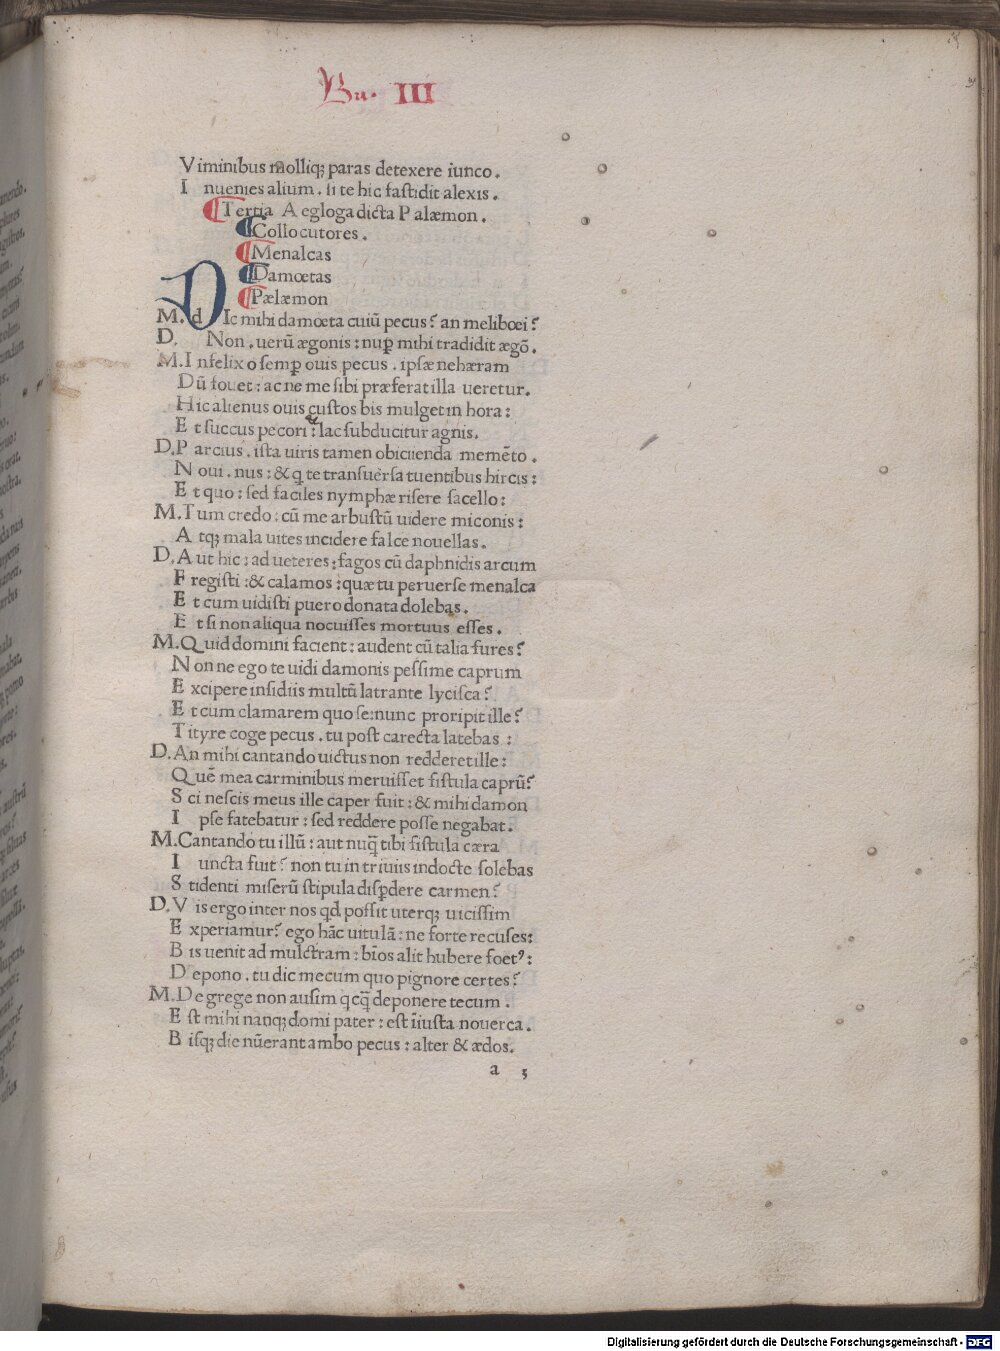 Bu. III
Viminibus molliq; paras detexere iunco.
I nuenies alium. si te hic fastidit alexis.
Tertia Aegloga dicta Palæmon.
Collocutores.
Menalcas
Damœtas
Pælæmon
M. d Ic mihi damœta cuiū pecus? an melibœi?
D. Non. uerū ægonis: nup̱ mihi tradidit ægō.
M. I nfelix o semp̱ ouis pecus. ipsæ nehæram
Dū fouet: ac ne me sibi præferat illa ueretur.
H ic alienus ouis custos bis mulget in hora:
E t succus pecori: & lac subducitur agnis.
D. P arcius. ista uiris tamen obicuenda memēto.
N oui. nus: & q te transuersa tuentibus hircis:
E t quo: sed faciles nymphæ risere sacello:
M. T um credo: cū me arbustū uidere miconis:
A tq; mala uites incidere falce nouellas.
D. A ut hic: ad ueteres: fagos cū daphnidis arcum
F registi: & calamos: quæ tu peruerse menalca
E t cum uidisti puero donata dolebas.
E t si non aliqua nocuisses mortuus esses.
M. Q uid domini facient: audent cū talia fures?
N on ne ego te uidi damonis pessime caprum
E xcipere insidiis multū latrante lycisca?
E t cum clamarem quo se: nunc proripit ille?
T ityre coge pecus. tu post carecta latebas:
D. An mihi cantando uictus non redderet ille:
Q uē mea carminibus meruisset fistula caprū?
S ci nescis meus ille caper fuit: & mihi damon
I pse fatebatur: sed reddere posse negabat.
M. Cantando tu illū: aut nuq̄ tibi fistula cæra
I uncta fuit? non tu in triuiis indocte solebas
S tidenti miserū stipula disp̱dere carmen?
D. V is ergo inter nos qd possit uterq; uicissim
E xperiamur? ego hāc uitulā: ne forte recuses:
B is uenit ad mulctram: bīos alit hubere foetꝰ:
D epono. tu dic mecum quo pignore certes?
M. De grege non ausim qcq̄ deponere tecum.
E st mihi nanq; domi pater: est īiusta nouerca.
B isq; die nūerant ambo pecus: alter & ædos.
a 3
Digitalisierung gefördert durch die Deutsche Forschungsgemeinschaft - DFG